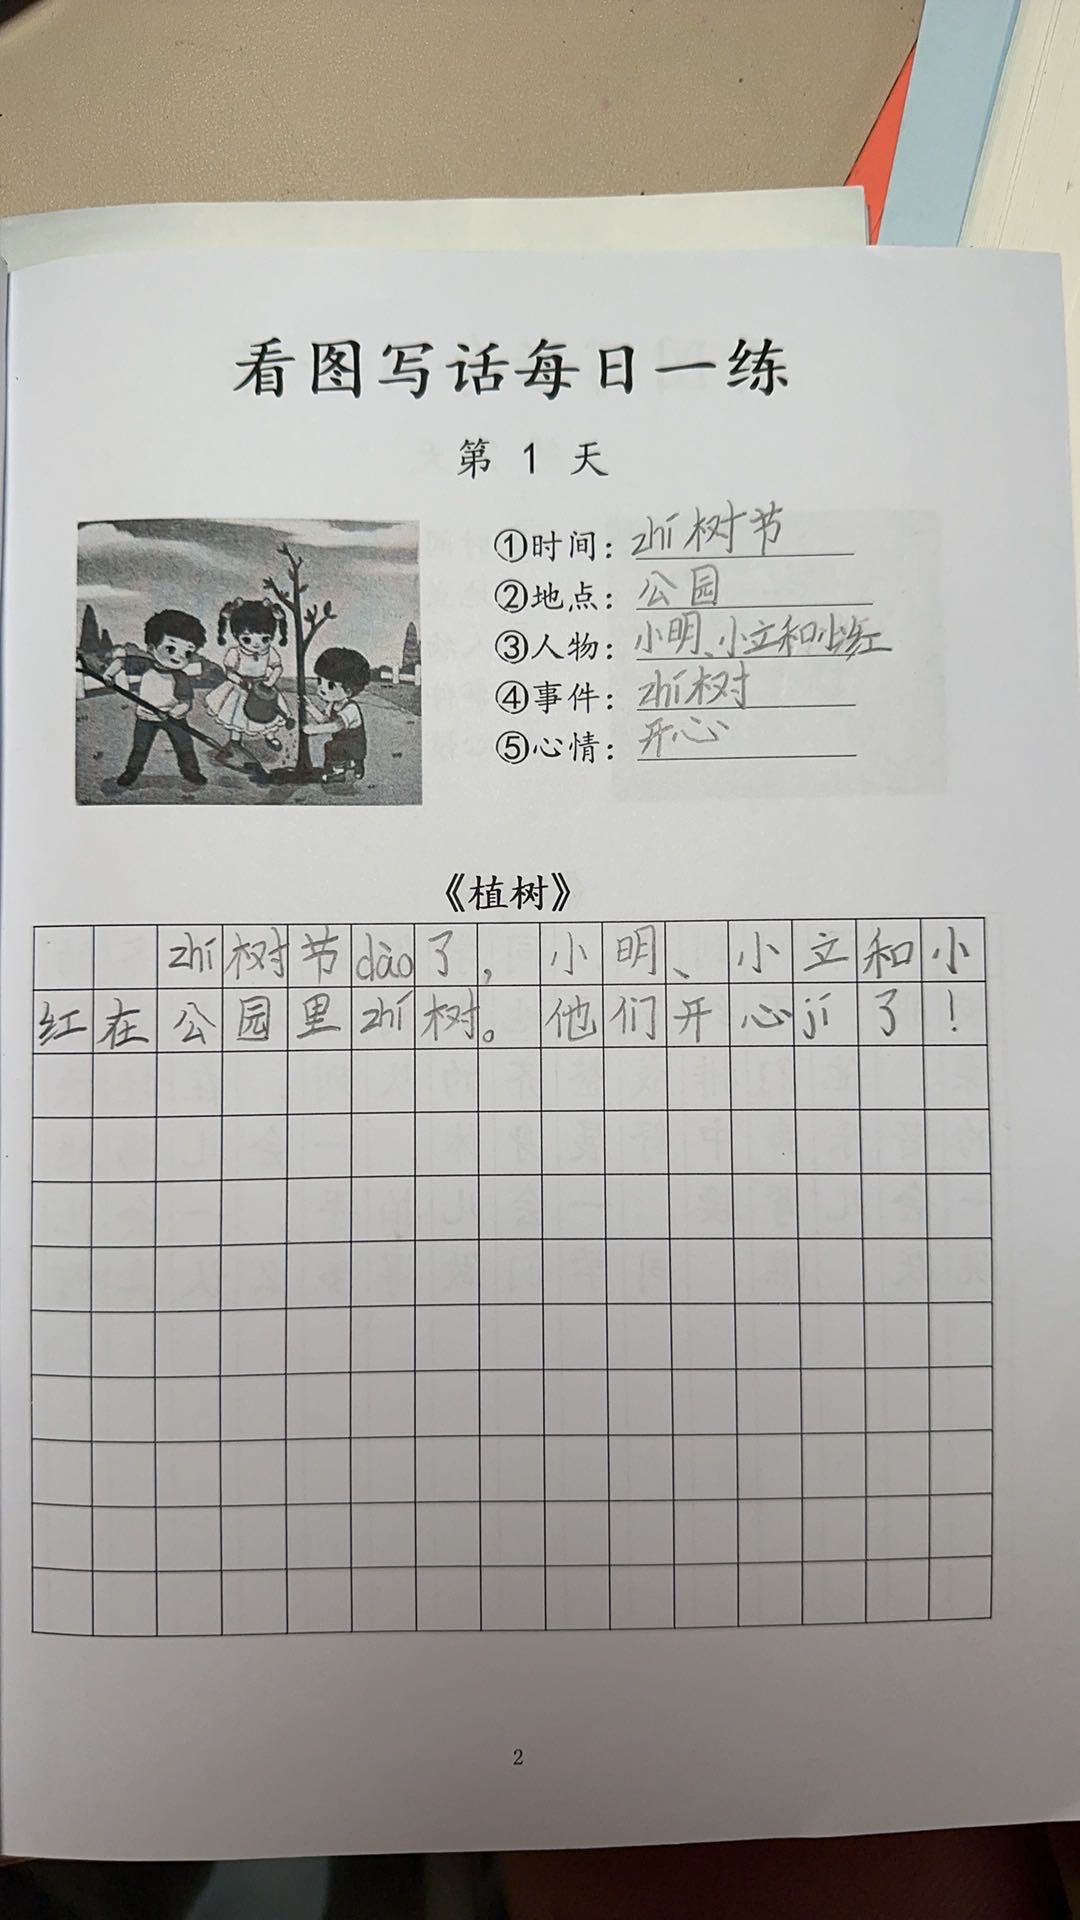 看图写话每日一练
第 1 天
①时间：zhí树节
②地点：公园
③人物：小明、小立和小红
④事件：zhí树
⑤心情：开心
《植树》
zhí树节dào了，小明、小立和小
红在公园里zhí树。他们开心jí了！
2